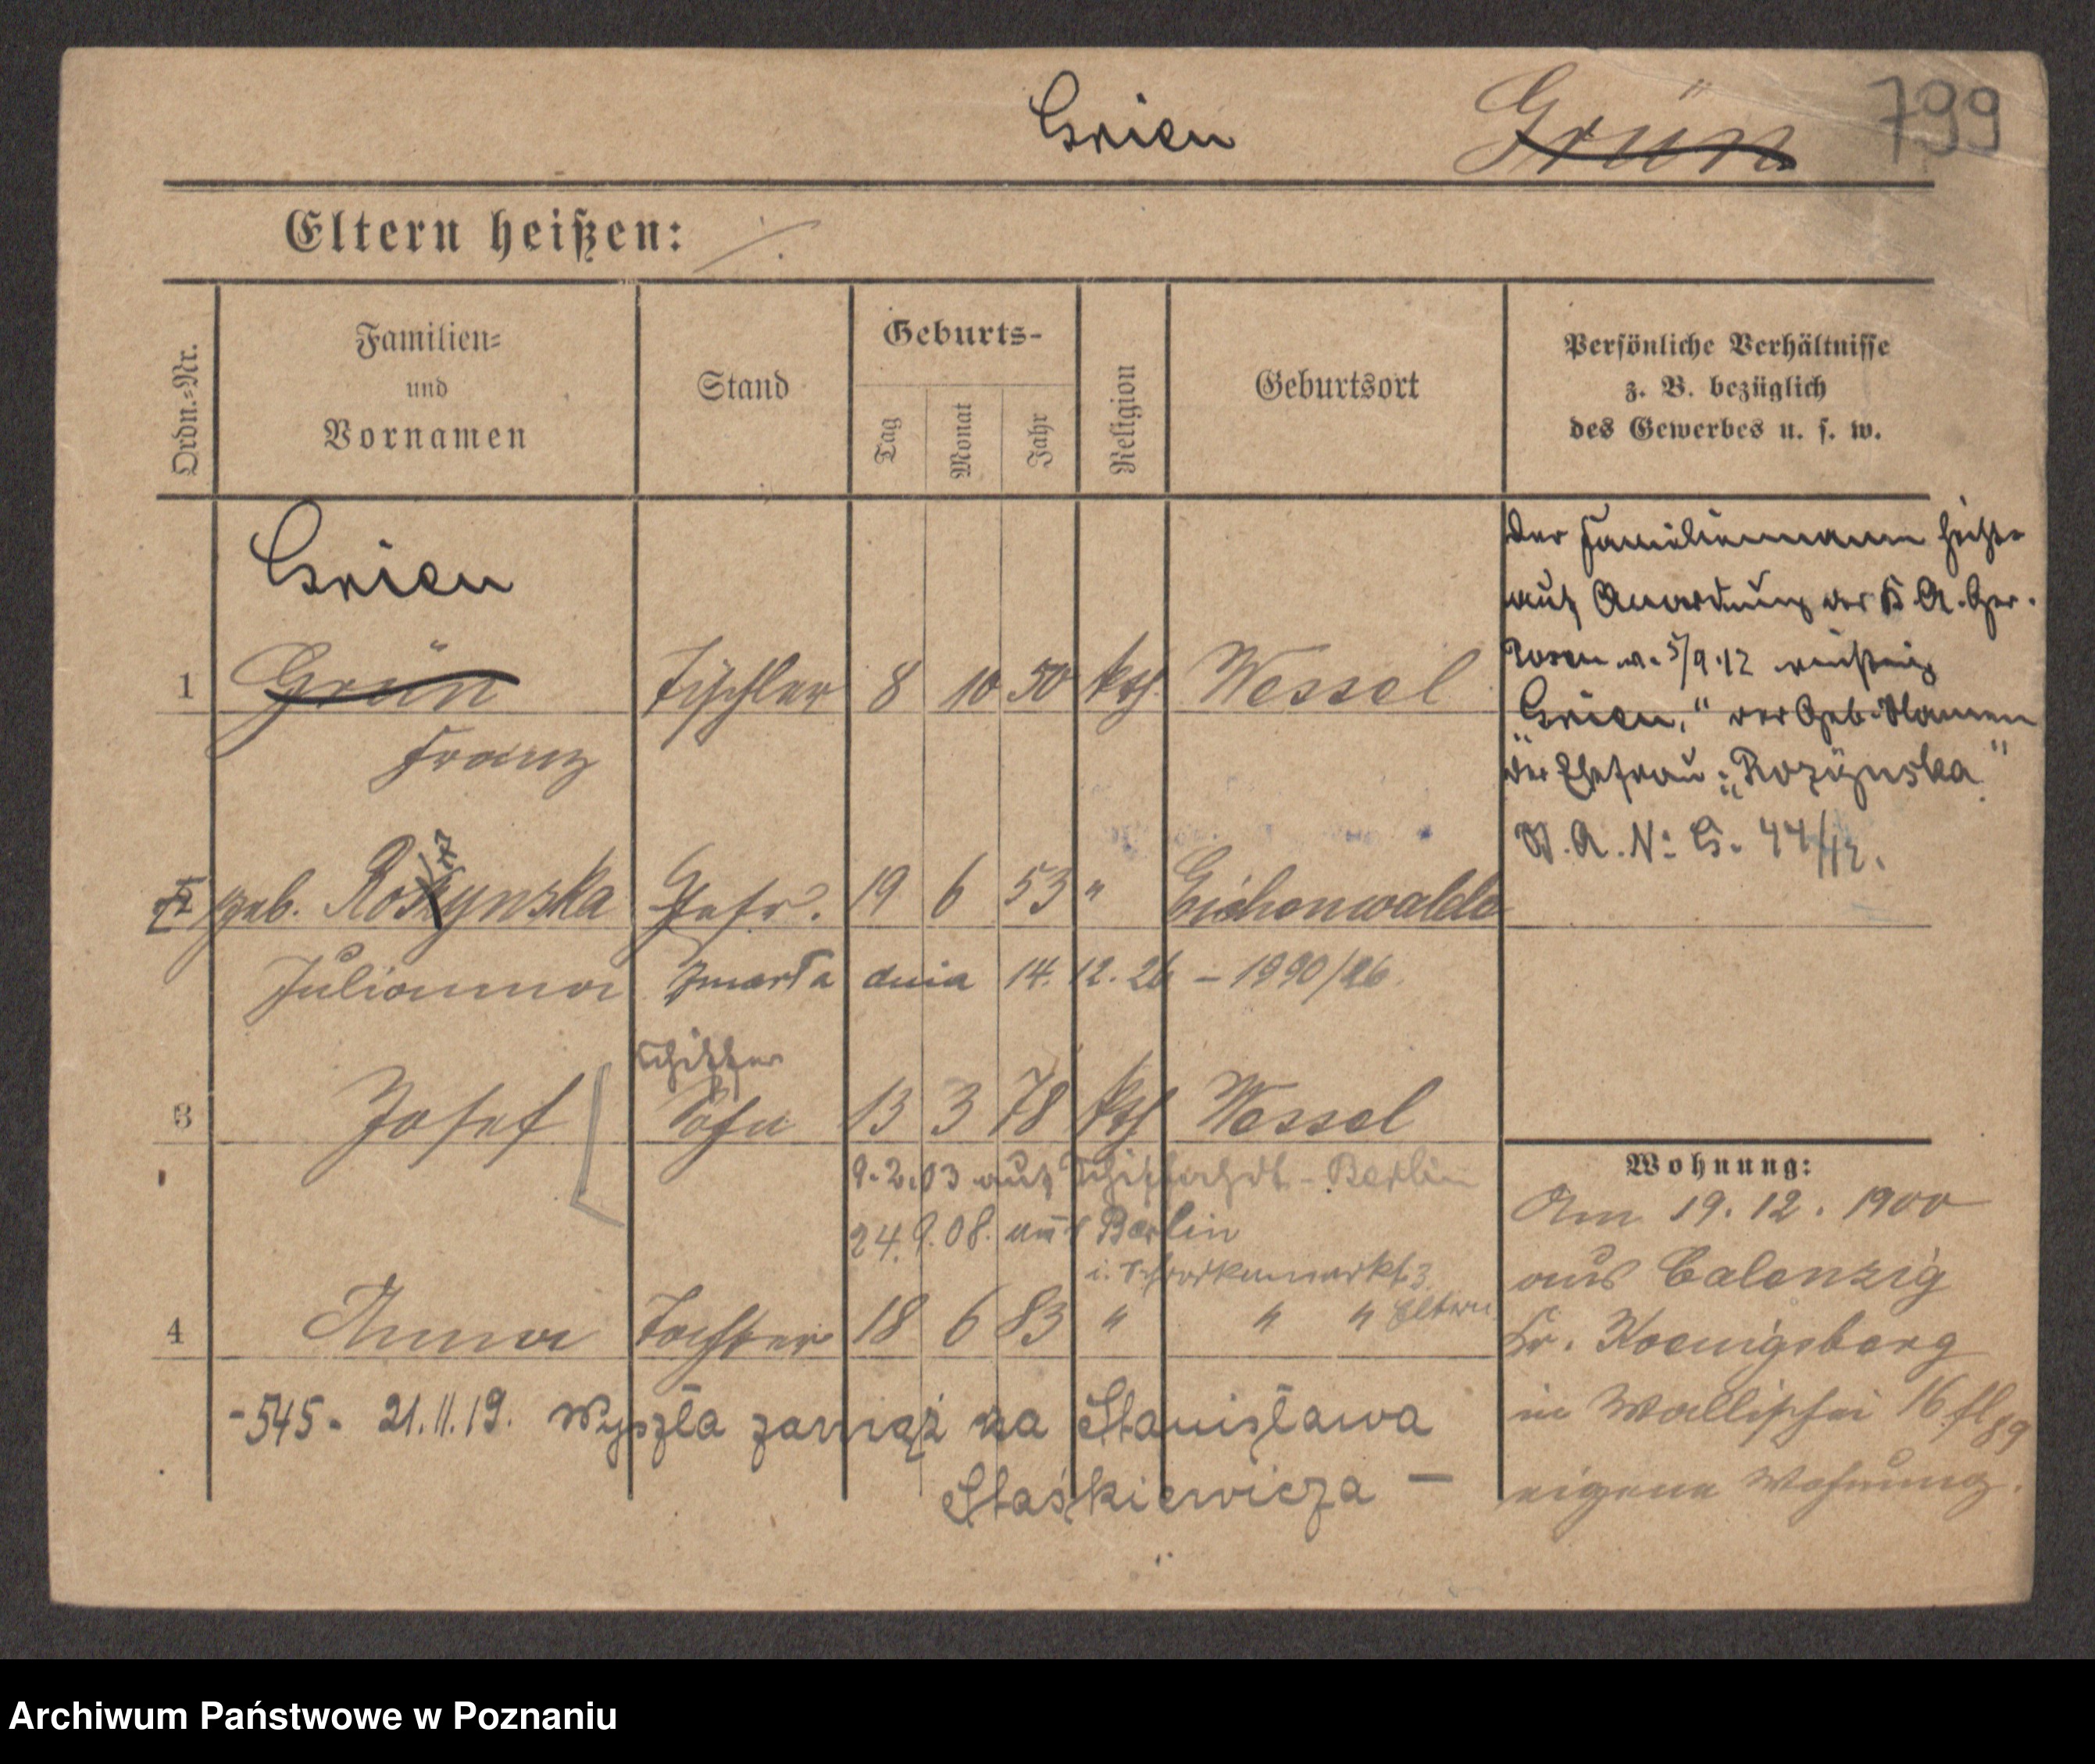 Grien Grün 799
Eltern heißen: ⁒
Ordn.-Nr.
Familien-
und
Vornamen
Stand
Geburts-
Tag
Monat
Jahr
Religion
Geburtsort
Persönliche Verhältnisse
z. B. bezüglich
des Gewerbes u. s. w.
Grien
1 Grün Tischler 8 10 50 kth. Wessel
Franz
Der Familienname heißt
auf Anordnung des K. A. Ger.
Posen v. 5/9.12 richtig
"Grien," der Geb. Namen
der Ehefrau: "Rozynska"
P. A. N: G. 44/12.
geb. Rozynska Ehefr. 19 6 53 " Eichenwalde
Julianna zmarła dnia 14.12.26 – 1990/26.
Schiffer
3 Josef Sohn 13 3 78 kth Wessel
9.2.03 auf Schiffahrt - Berlin
24.9.08. Berlin
4 Anna Tochter 18 6 83 " " " Eltern
-545- 21.11.19. Wyszła zamąż za Stanisława
Staśkiewicza –
Wohnung:
Am 19.12.1900
aus Calenzig
Kr. Koenigsberg
in Wallischei 16
eigene Wohnung.
Archiwum Państwowe w Poznaniu